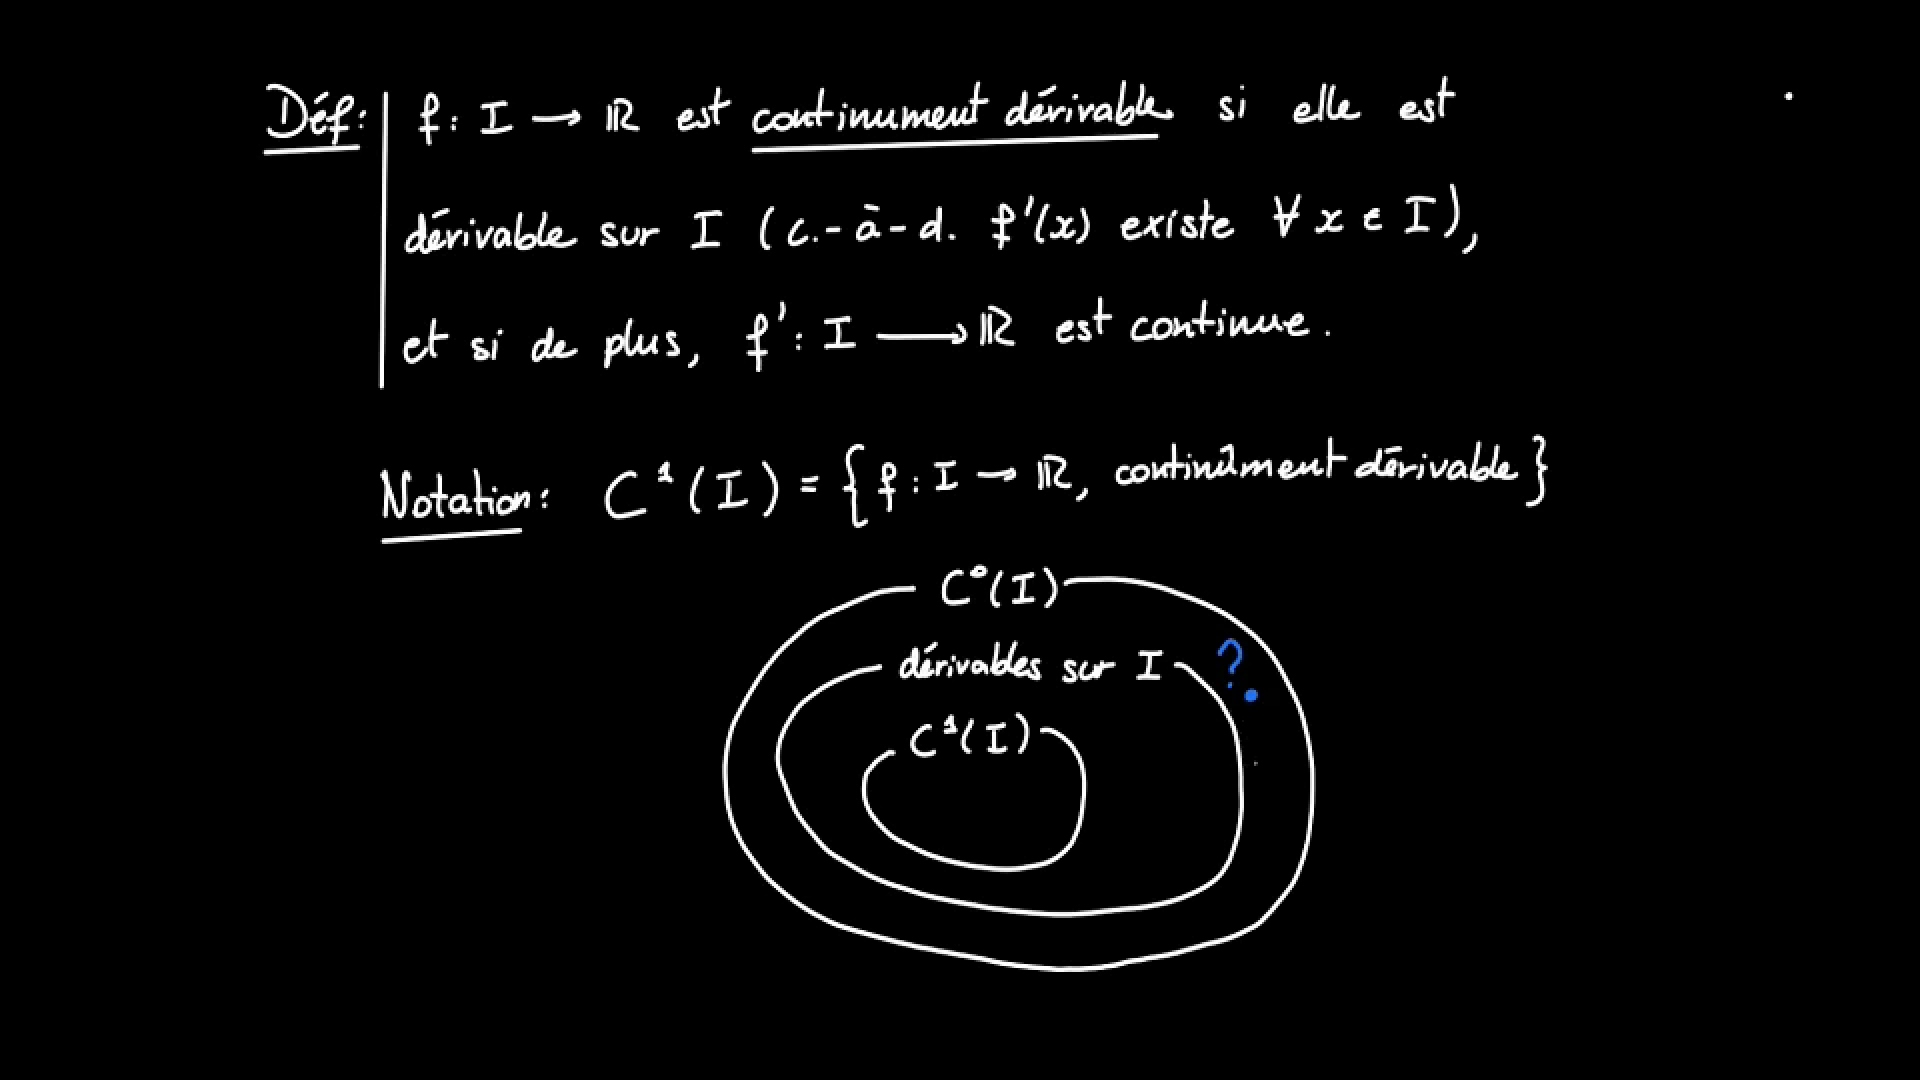 Déf: f: I → ℝ est continument dérivable si elle est
dérivable sur I (c.-à-d. f'(x) existe ∀ x ∈ I),
et si de plus, f': I → ℝ est continue.
Notation: C¹(I) = {f: I → ℝ, continûment dérivable}
C⁰(I)
dérivables sur I ?
C¹(I)